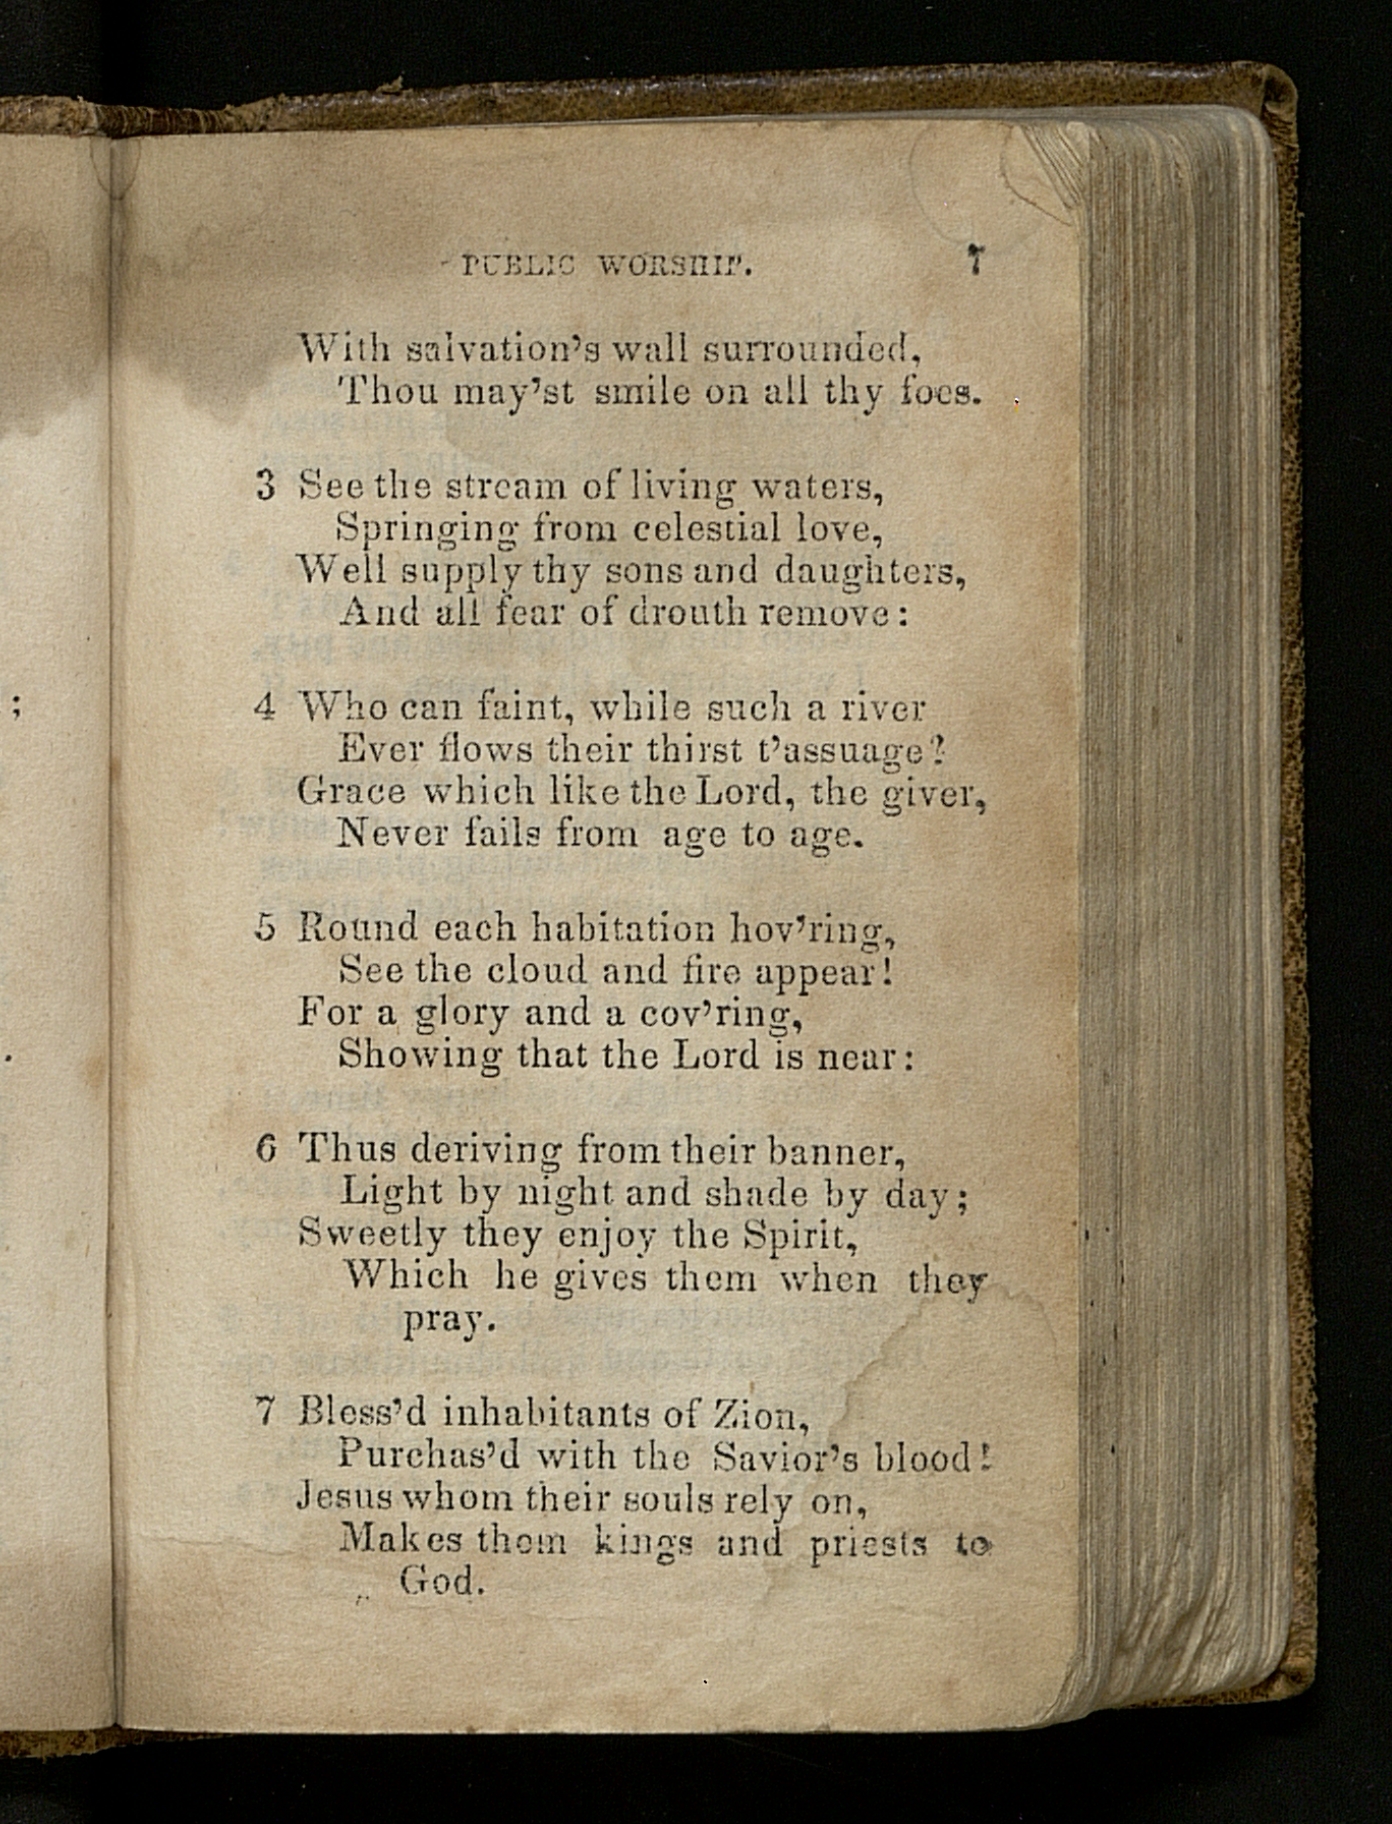 PUBLIC WORSHIP. 7
With salvation's wall surrounded,
Thou may'st smile on all thy foes.
3 See the stream of living waters,
Springing from celestial love,
Well supply thy sons and daughters,
And all fear of drouth remove:
;
4 Who can faint, while such a river
Ever flows their thirst t'assuage?
Grace which like the Lord, the giver,
Never fails from age to age.
5 Round each habitation hov'ring,
See the cloud and fire appear!
For a glory and a cov'ring,
Showing that the Lord is near:
.
6 Thus deriving from their banner,
Light by night and shade by day;
Sweetly they enjoy the Spirit,
Which he gives them when they
pray.
7 Bless'd inhabitants of Zion,
Purchas'd with the Savior's blood!
Jesus whom their souls rely on,
Makes them kings and priests to
God.